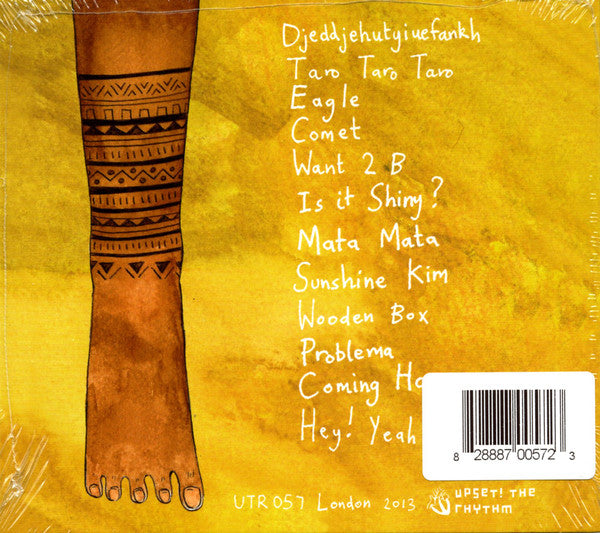 Djeddjehutyiuefankh
Taro Taro Taro
Eagle
Comet
Want 2 B
Is it Shiny?
Mata Mata
Sunshine Kim
Wooden Box
Problema
Coming
Hey! Yeah
8 28887 00572 3
UTR057 London 2013
UPSET! THE
RHYTHM